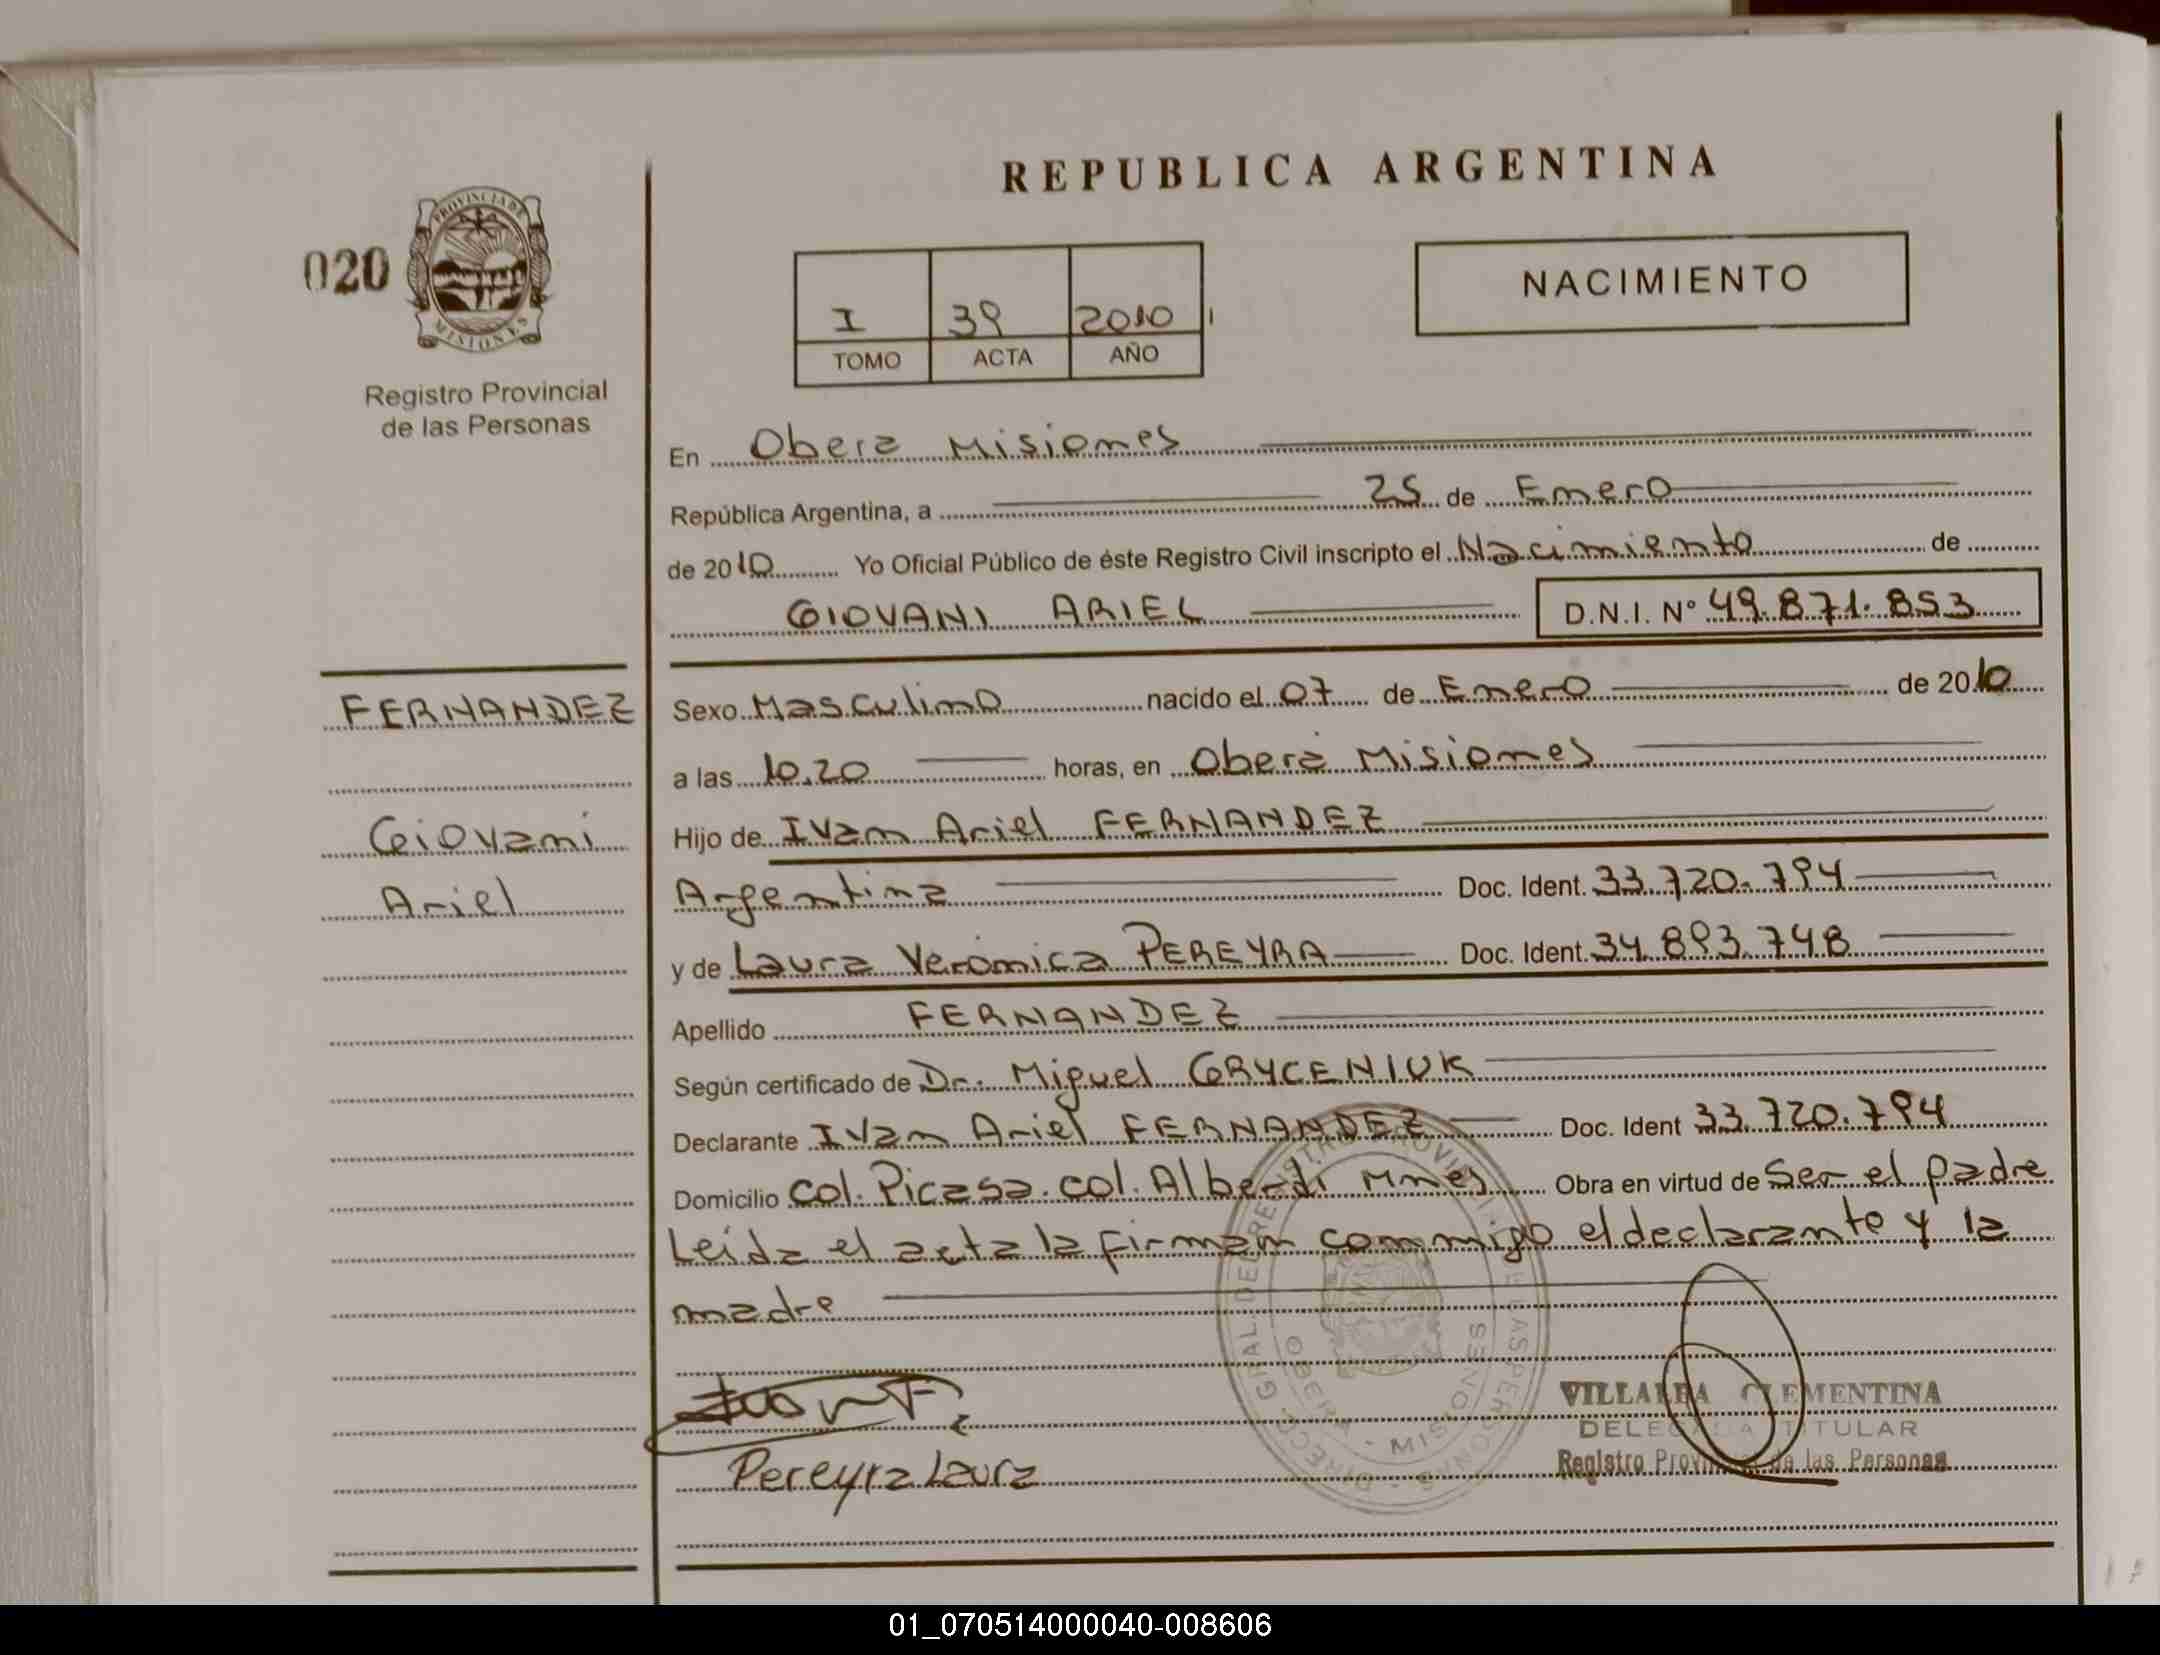 REPUBLICA ARGENTINA
020
PROVINCIA DE
MISIONES
Registro Provincial
de las Personas
I 39 2010
TOMO ACTA AÑO
NACIMIENTO
En Obera Misiones
República Argentina, a 25 de Enero
de 2010 Yo Oficial Público de éste Registro Civil inscripto el Nacimiento de
GIOVANI ARIEL D.N.I. Nº 49.871.853
FERNANDEZ
Giovani
Ariel
Sexo Masculino nacido el 07 de Enero de 2010
a las 10.20 horas, en Oberá Misiones
Hijo de Ivan Ariel FERNANDEZ
Argentina Doc. Ident. 33.720.794
y de Laura Verónica PEREYRA Doc. Ident. 34.893.748
Apellido FERNANDEZ
Según certificado de Dr. Miguel GRYCENIUK
Declarante Ivan Ariel FERNANDEZ Doc. Ident 33.720.794
Domicilio col. Picasa. col. Alberdi Mnes Obra en virtud de Ser el padre
Leída el acta la firman conmigo el declarante y la
madre
DIRECC. GRAL. DEL REGISTRO PROVINCIAL DE LAS PERSONAS
OBERA - MISIONES
VILLALBA CLEMENTINA
DELEGADA TITULAR
Registro Provincial de las Personas
Pereyra Laura
01_070514000040-008606